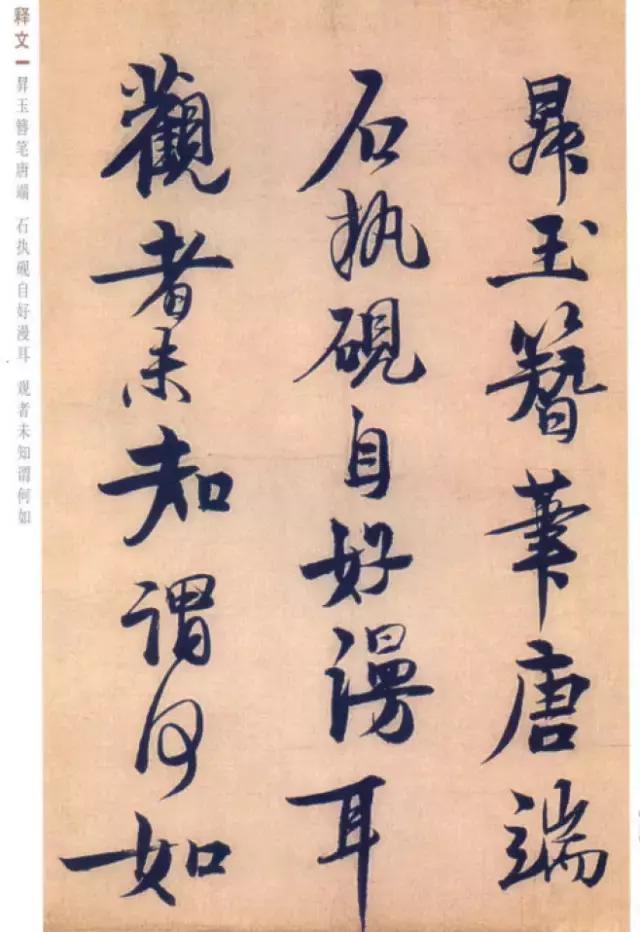 昇玉簪筆唐端
石执硯自好漫耳
觀者未知謂何如
释文 昇玉簪笔唐端 石执砚自好漫耳 观者未知谓何如